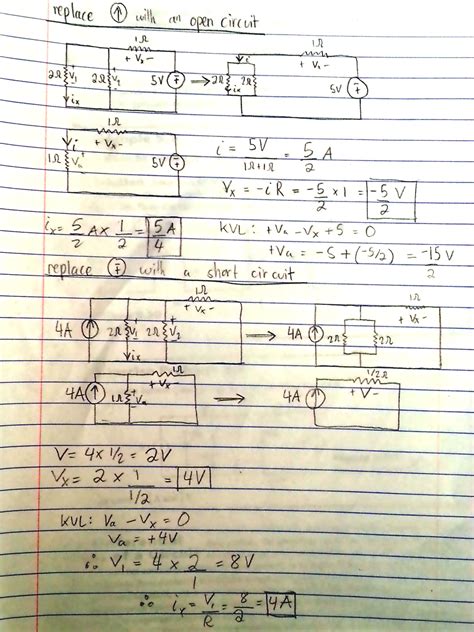 replace ↑ with an open circuit
1Ω 1Ω
+ Vx - + Vx -
2Ω V1 2Ω V2 5V → 2Ω 2Ω 5V
ix ix
1Ω
i + Vx -
1Ω Va 5V
i = 5V / 1Ω+1Ω = 5/2 A
Vx = -iR = -5/2 x 1 = -5/2 V
ix = 5/2 A x 1/2 = 5A/4
KVL: +Va - Vx + 5 = 0
+Va = -5 + (-5/2) = -15V/2
replace with a short circuit
1Ω 1Ω
+ Vx - + Vx -
4A 2Ω V1 2Ω V2 → 4A 2Ω 2Ω
ix
1Ω 1/2Ω
4A + Vx - 4A + V -
1Ω Va →
V = 4 x 1/2 = 2V
Vx = 2 x 1 / 1/2 = 4V
KVL: Va - Vx = 0
Va = +4V
∴ V1 = 4 x 2/1 = 8V
∴ ix = V1/R = 8/2 = 4A